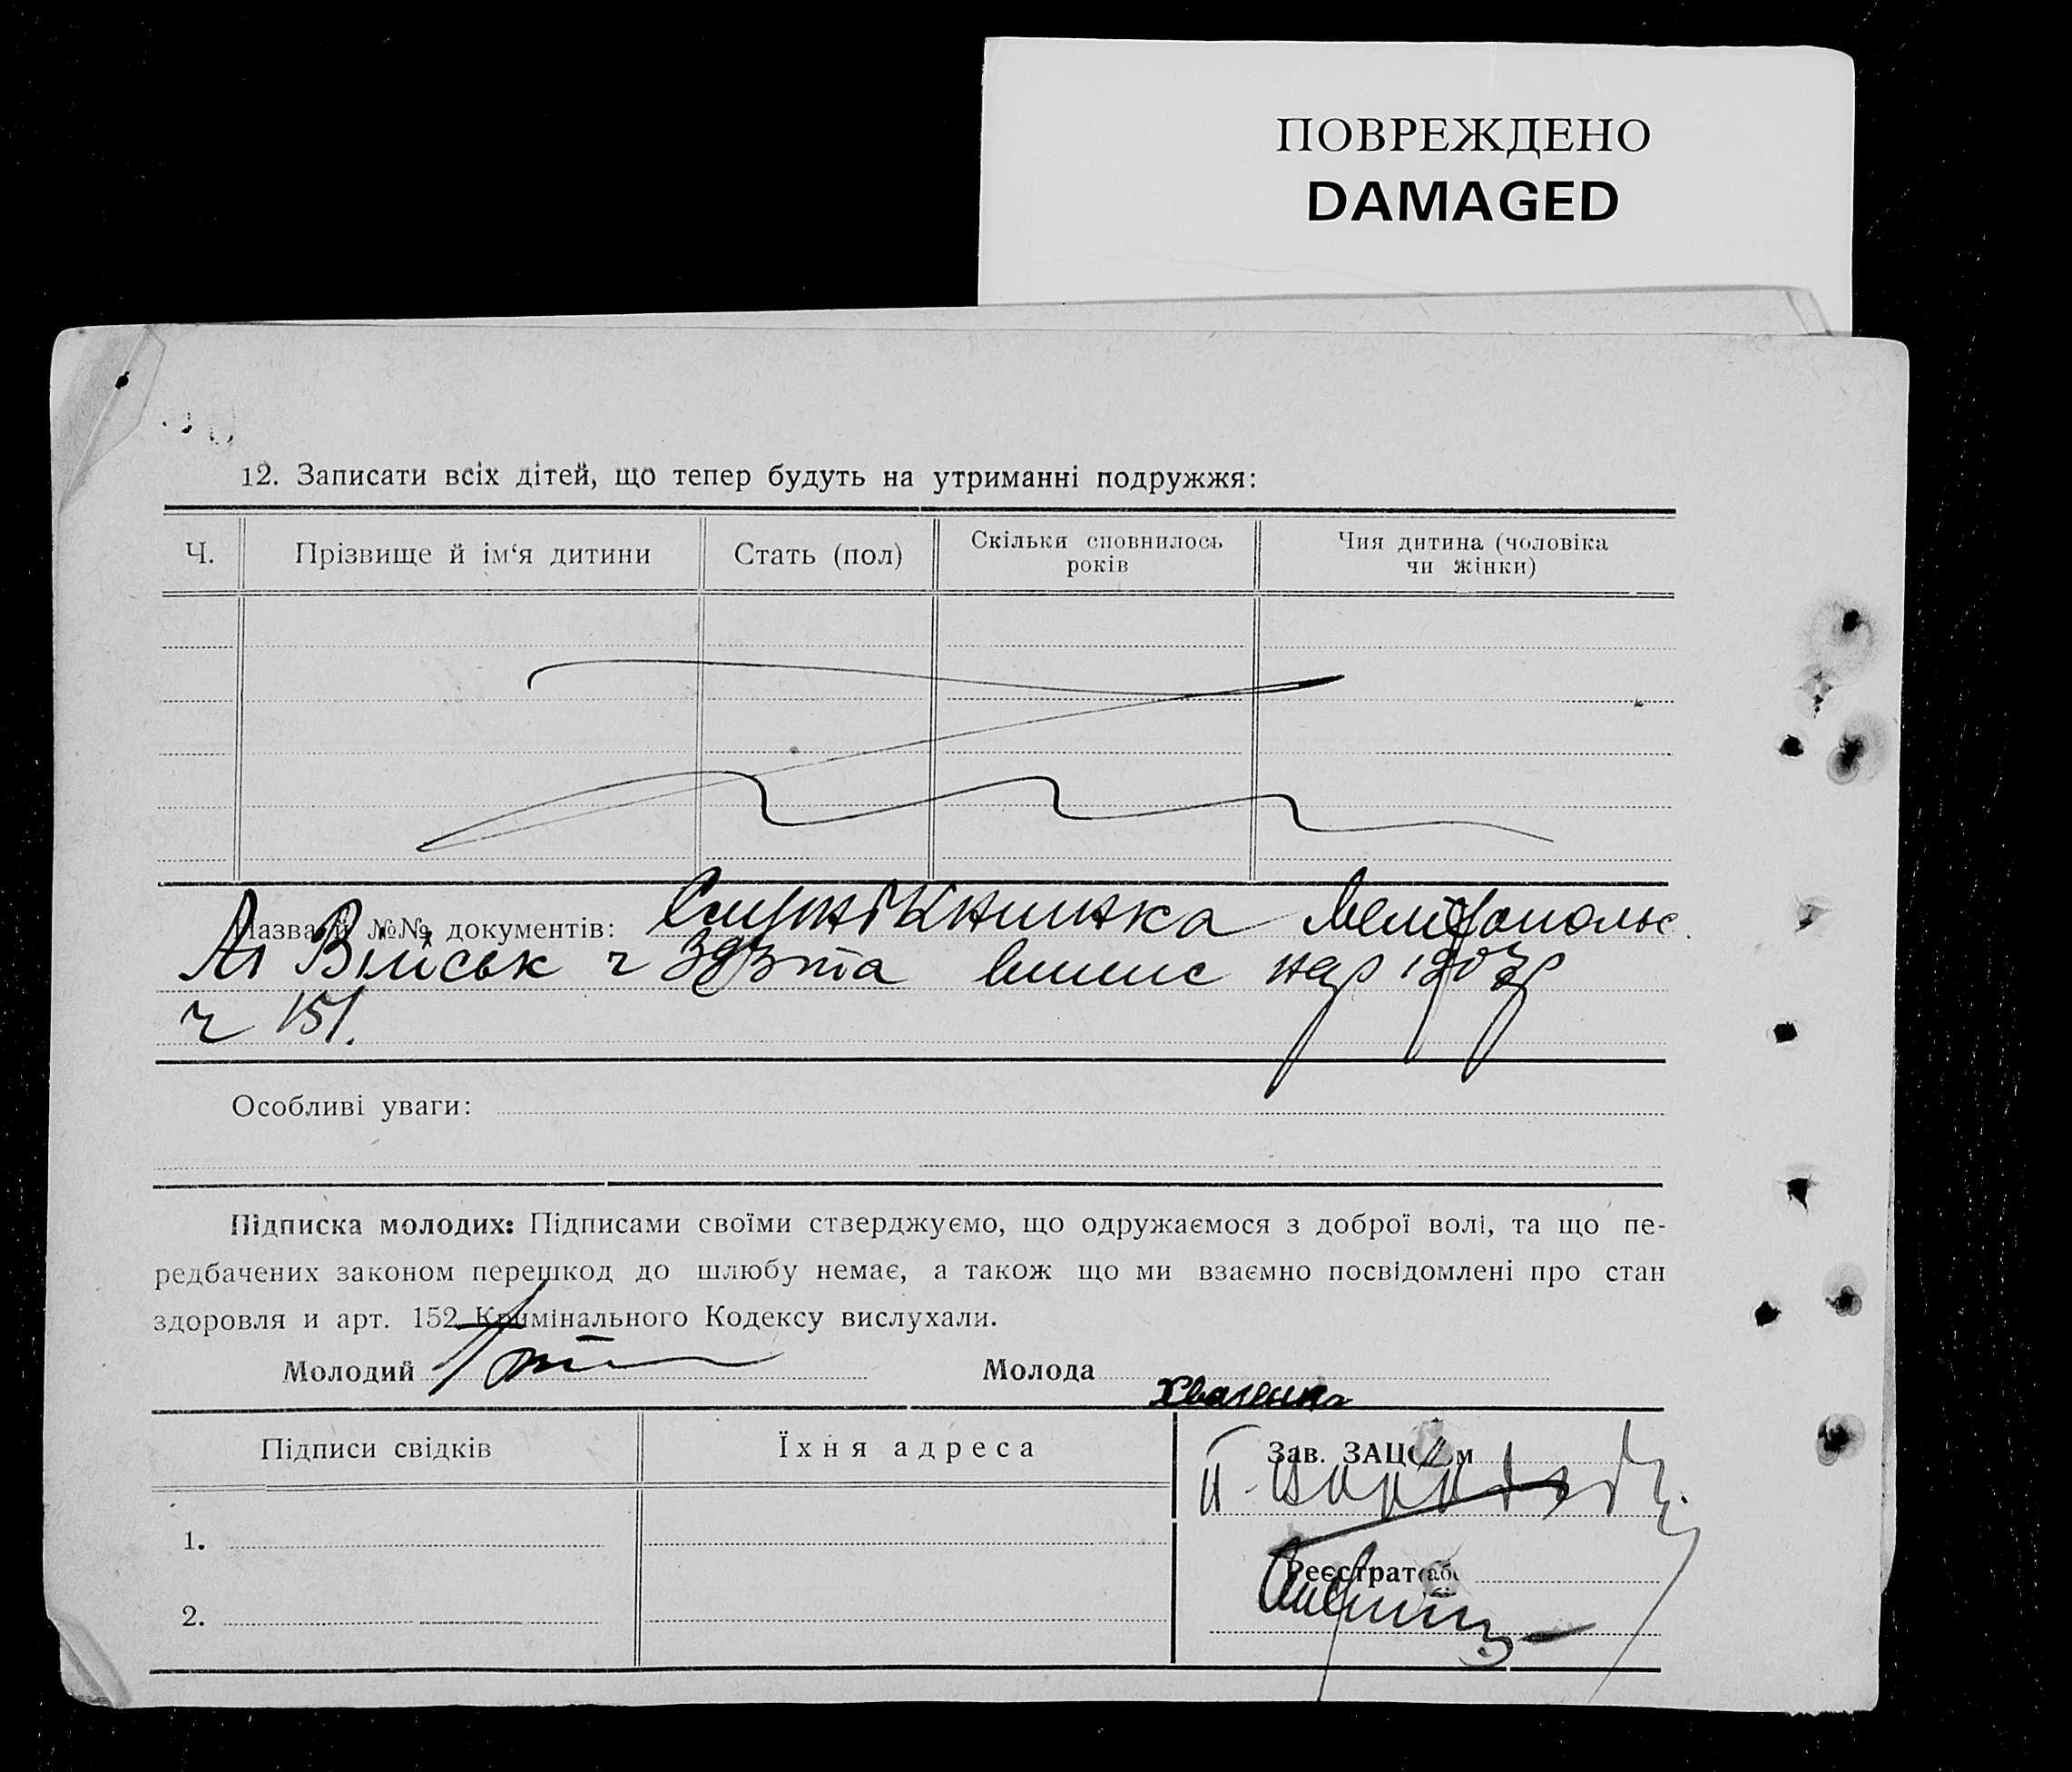 ПОВРЕЖДЕНО
DAMAGED
12. Записати всіх дітей, що тепер будуть на утриманні подружжя:
Ч.
Прізвище й ім‘я дитини
Стать (пол)
Скільки сповнилось
років
Чия дитина (чоловіка
чи жінки)
Назва й №№ документів:
Військ ч та випис нар 1907р
ч 151.
Особливі уваги:
Підписка молодих: Підписами своїми стверджуємо, що одружаємося з доброї волі, та що пе-
редбачених законом перешкод до шлюбу немає, а також що ми взаємно посвідомлені про стан
здоровля и арт. 152 Кримінального Кодексу вислухали.
Молодий
Молода
Підписи свідків
Їхня адреса
Зав. ЗАЦСом
Реєстратор
1.
2.